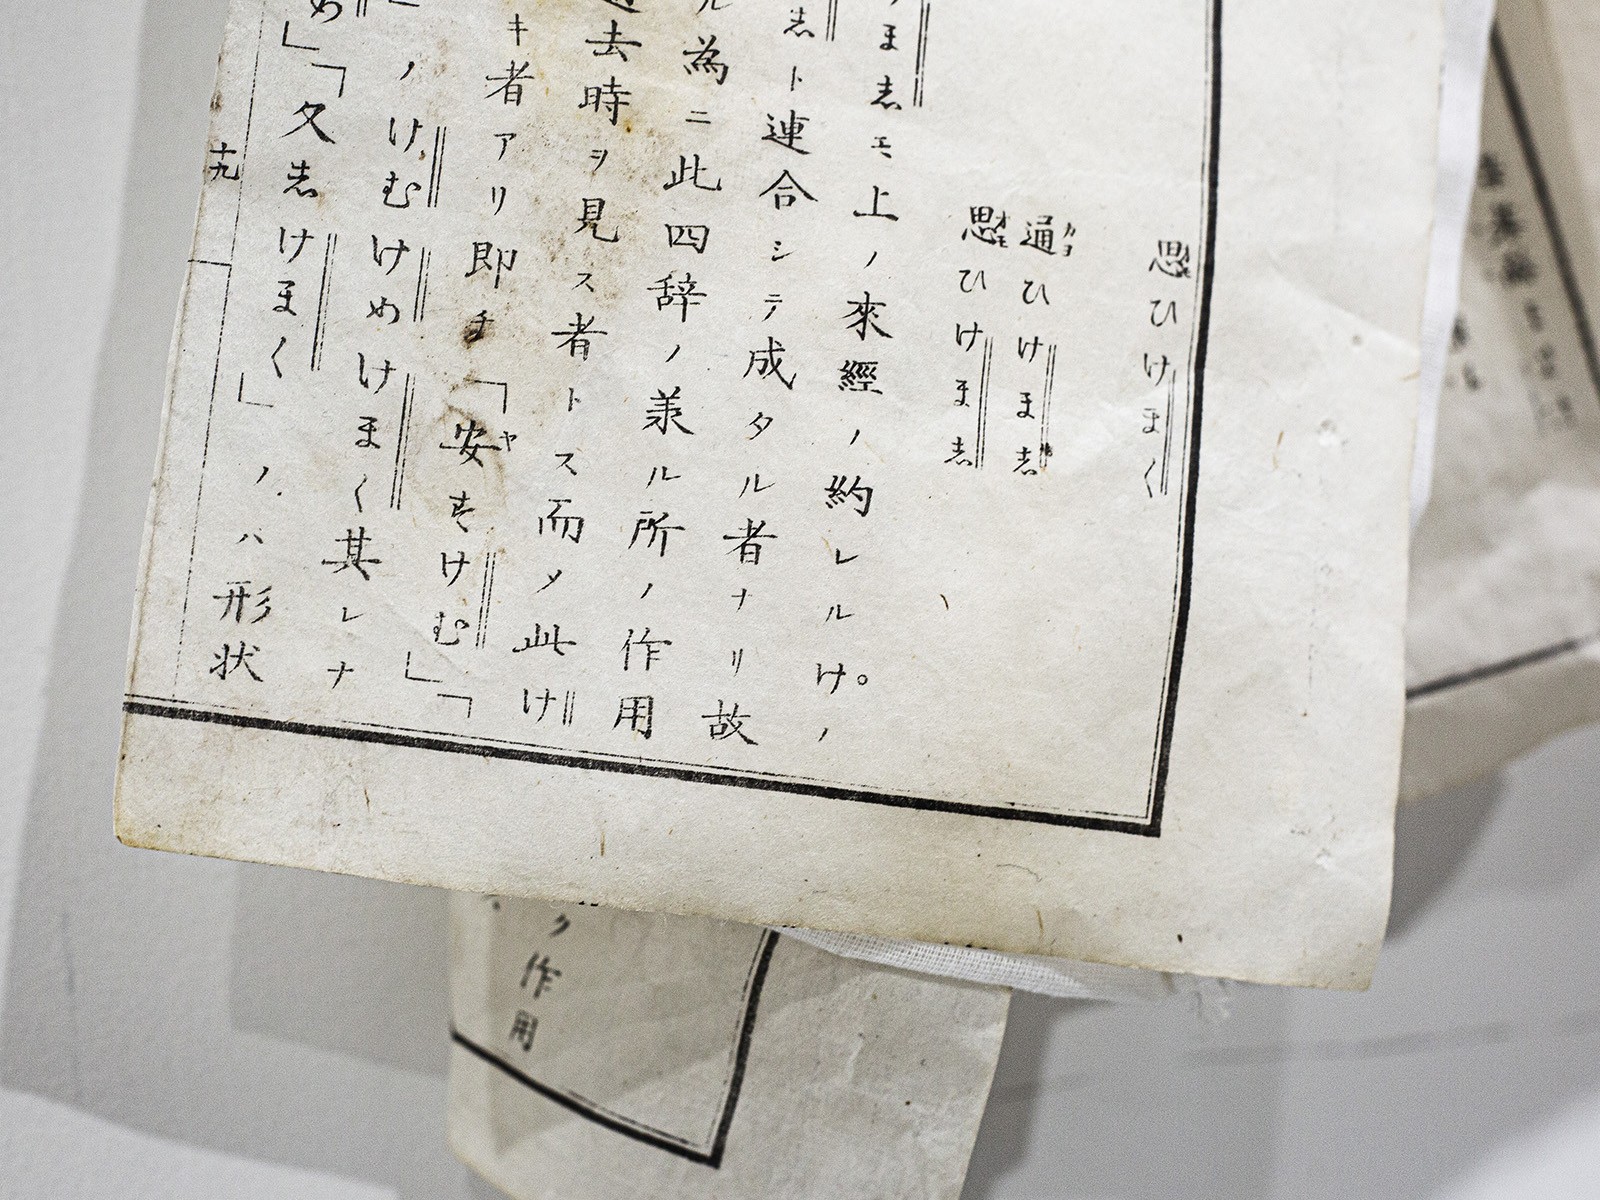 思ひけまく
通ひけま志
思ひけま志
ま志モ上ノ來經ノ約レルけ。ノ
志ト連合シテ成タル者ナリ故
為ニ此四辞ノ羕ル所ノ作用
去時ヲ見ス者トス而メ此け
キ者アリ即チ「安すけむ」「
ノけむけめけまく其レナ
め」「又志けまく」ノハ形状
十九
ク作用